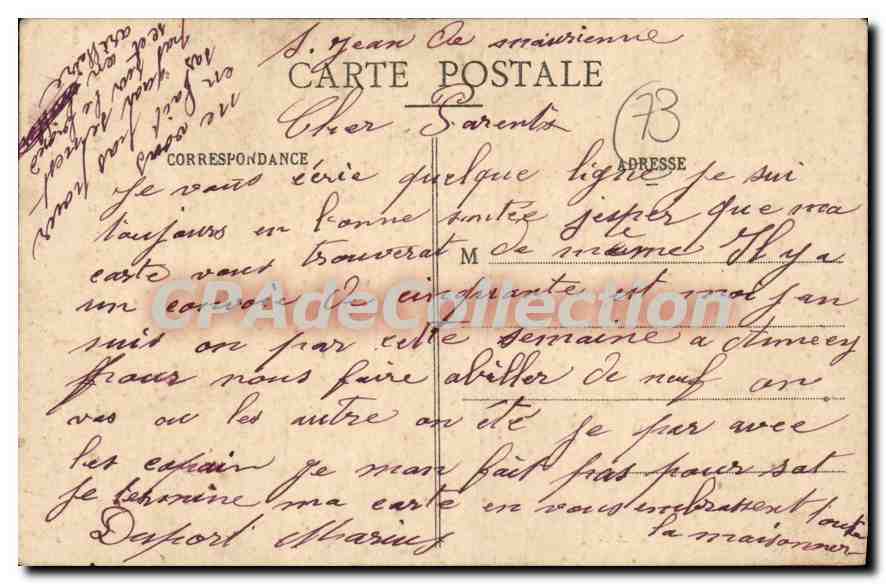 S. Jean de maurienne
CARTE POSTALE
73
Cher Parents
CORRESPONDANCE
ADRESSE
Je vous écrie quelque ligne Je sui
toujours en bonne santée j'esper que ma
carte vous trouverat de même Il y a
M
un convoie de cinquante est moi j'an
suis on par cette semaine a Annecy
pour nous faire abiller de neuf on
vas ou les autre on été Je par avec
les copain Je man fait pas pour sat
Je termine ma carte en vous embrassent toute
la maisonner
Duport Marius
ne vous
en fait pas pour
sas
CPAdeCollection.com